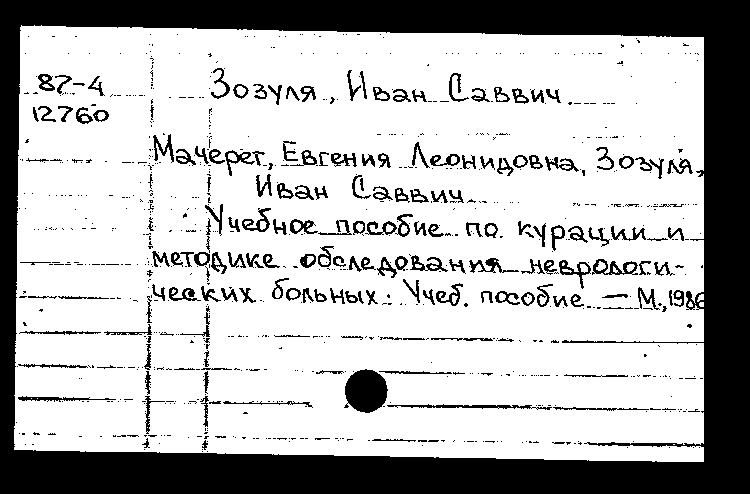 87-4
12760
Зозуля, Иван Саввич.
Мачерет, Евгения Леонидовна, Зозуля,
Иван Саввич
Учебное пособие по курации и
методике обследования неврологи-
ческих больных: Учеб. пособие — М., 1986